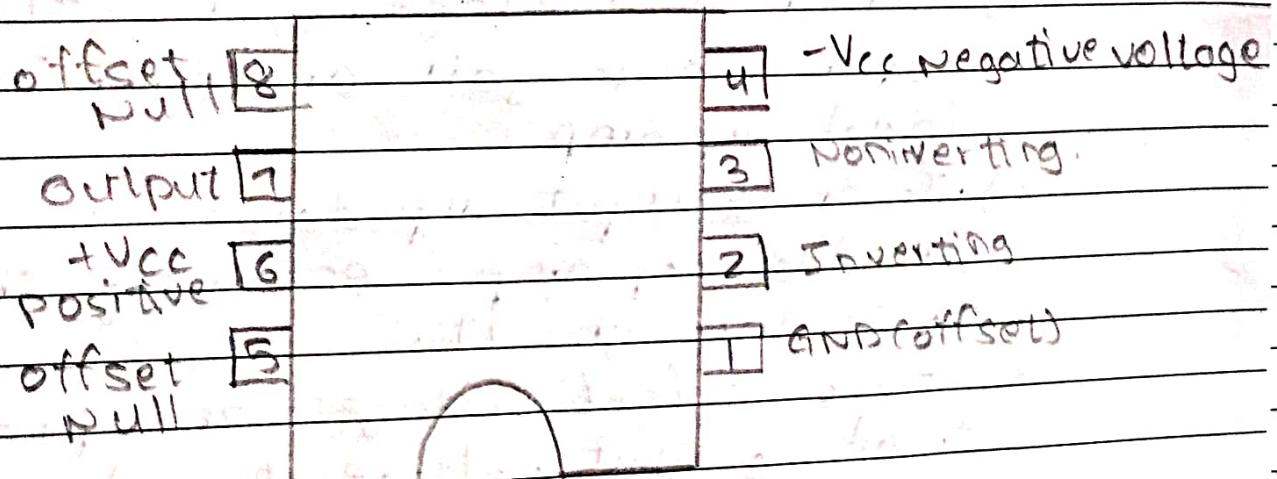 offset
Null
8
output
7
+Vcc
positive
6
offset
Null
5
4
-Vcc Negative voltage
3
Noninverting.
2
Inverting
1
GND (offset)